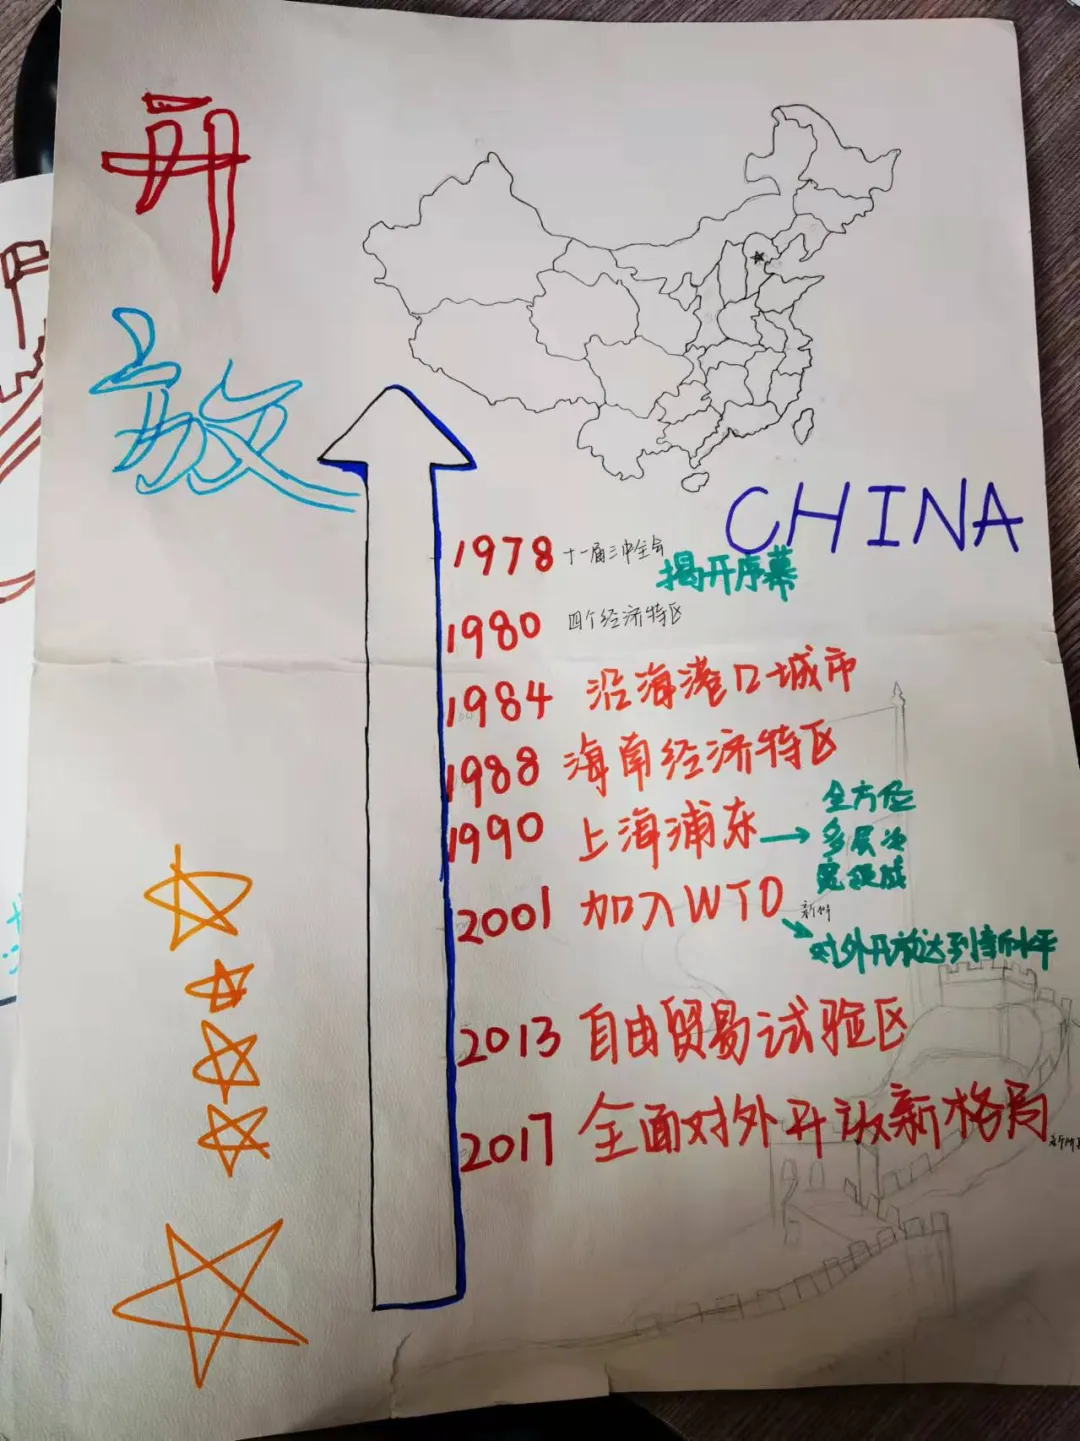 开
放
CHINA
1978 十一届三中全会
揭开序幕
1980 四个经济特区
1984 沿海港口城市
1988 海南经济特区
1990 上海浦东
全方位
多层次
宽领域
2001 加入WTO
新阶
对外开放达到新水平
2013 自由贸易试验区
2017 全面对外开放新格局